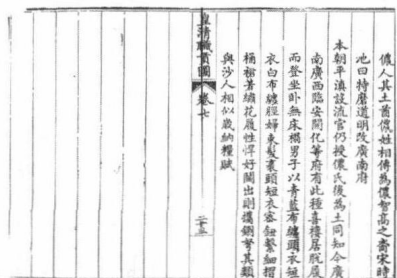 儂人其土酋儂姓相傳為儂智高之裔宋時
地曰特磨道明改廣南府
本朝平滇設流官仍授儂氏後為土同知今廣
南廣西臨安開化等府有此種喜樓居脫履
而登坐卧無床榻男子以青藍布纏頭衣短
衣白布纏脛婦束髮裹頭短衣密鈕繫細摺
桶裙著繡花履性悍好鬭出則攜鎗弩其類
與沙人相似歲納糧賦
皇清職貢圖
卷七